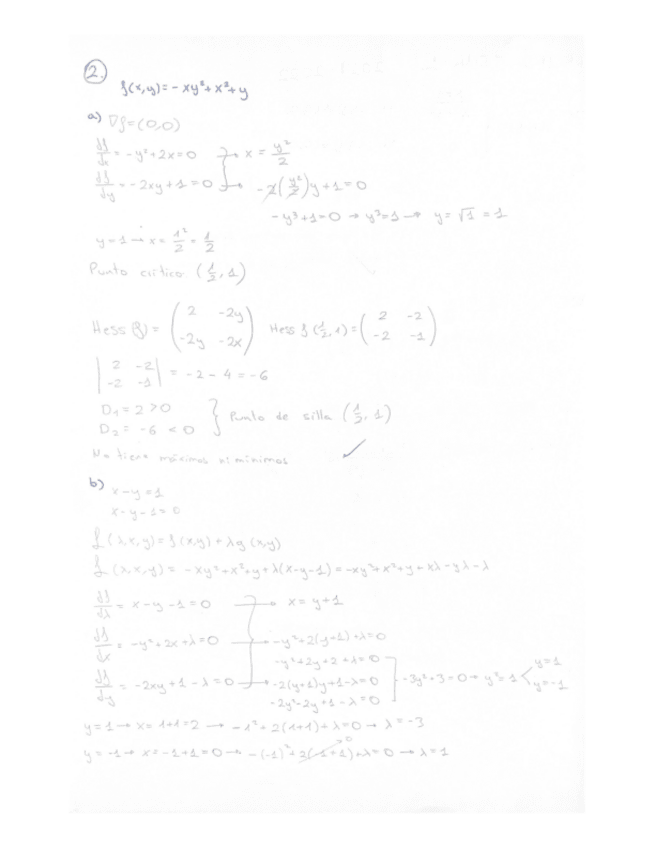 2.
f(x,y) = - xy² + x² + y
a) ∇f = (0,0)
df/dx = - y² + 2x = 0 → x = y²/2
df/dy = - 2xy + 1 = 0 → - 2(y²/2)y + 1 = 0
- y³ + 1 = 0 → y³ = 1 → y = √1 = 1
y = 1 → x = 1²/2 = 1/2
Punto crítico (1/2, 1)
Hess (f) = ( 2 -2y ; -2y -2x ) Hess f (1/2, 1) = ( 2 -2 ; -2 -1 )
| 2 -2 ; -2 -1 | = - 2 - 4 = - 6
D₁ = 2 > 0
D₂ = - 6 < 0 } Punto de silla (1/2, 1)
No tiene máximos ni mínimos ✓
b) x - y = 1
x - y - 1 = 0
L (λ, x, y) = f (x,y) + λ g (x,y)
L (λ, x, y) = - xy² + x² + y + λ(x - y - 1) = - xy² + x² + y + xλ - yλ - λ
df/dλ = x - y - 1 = 0 → x = y + 1
df/dx = - y² + 2x + λ = 0 → - y² + 2(y+1) + λ = 0
- y² + 2y + 2 + λ = 0
df/dy = - 2xy + 1 - λ = 0 → - 2(y+1)y + 1 - λ = 0
- 2y² - 2y + 1 - λ = 0
- 3y² + 3 = 0 → y² = 1 y = 1 y = -1
y = 1 → x = 1 + 1 = 2 → - 1² + 2(1+1) + λ = 0 → λ = -3
y = -1 → x = -1 + 1 = 0 → - (-1)² + 2(-1+1) + λ = 0 → λ = 1